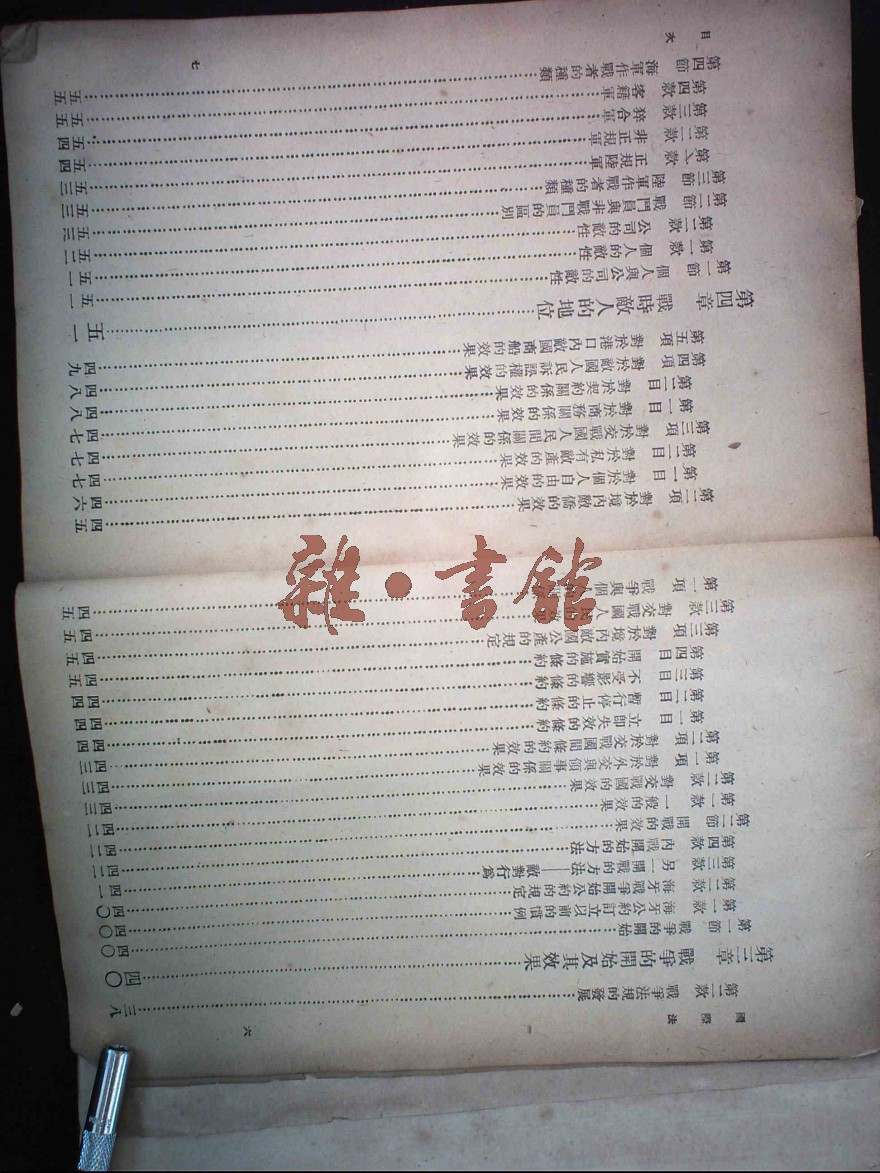 國際法 六
第二款 戰爭法規的發展……三八
第三章 戰爭的開始及其效果……四〇
第一節 戰爭的開始……四〇
第一款 海牙公約訂立以前的慣例……四〇
第二款 海牙戰爭開始公約的規定……四〇
第三款 另一開戰的方法——敵對行爲……四一
第四款 內戰開始的方法……四二
第二節 開戰的效果……四二
第一款 一般的效果……四二
第二款 對交戰國的效果……四三
第一項 對於外交與領事關係的效果……四三
第二項 對於交戰國間條約的效果……四三
第一目 立即失效的條約……四四
第二目 暫行停止的條約……四四
第三目 不受影響的條約……四四
第四目 開始實施的條約……四五
第三項 對於境內敵國公產的規定……四五
第三款 對交戰國人民……四五
第一項 戰爭與個人……四五
目次 七
第二項 對於境內敵僑的效果……四五
第一目 對於個人自由的效果……四六
第二目 對於私有敵產的效果……四七
第三項 對於交戰國人民間關係的效果……四七
第一目 對於商務關係的效果……四七
第二目 對於契約關係的效果……四八
第四項 對於敵國人民訴訟權的效果……四八
第五項 對於港口內敵國商船的效果……四九
第四章 戰時敵人的地位……五一
第一節 個人與公司的敵性……五一
第一款 個人的敵性……五一
第二款 公司的敵性……五二
第二節 戰鬥員與非戰鬥員的區別……五三
第三節 陸軍作戰者的種類……五三
第一款 正規陸軍……五三
第二款 非正規軍……五四
第三款 猝合軍……五四
第四款 客籍軍……五五
第四節 海軍作戰者的種類……五五
雜·書館